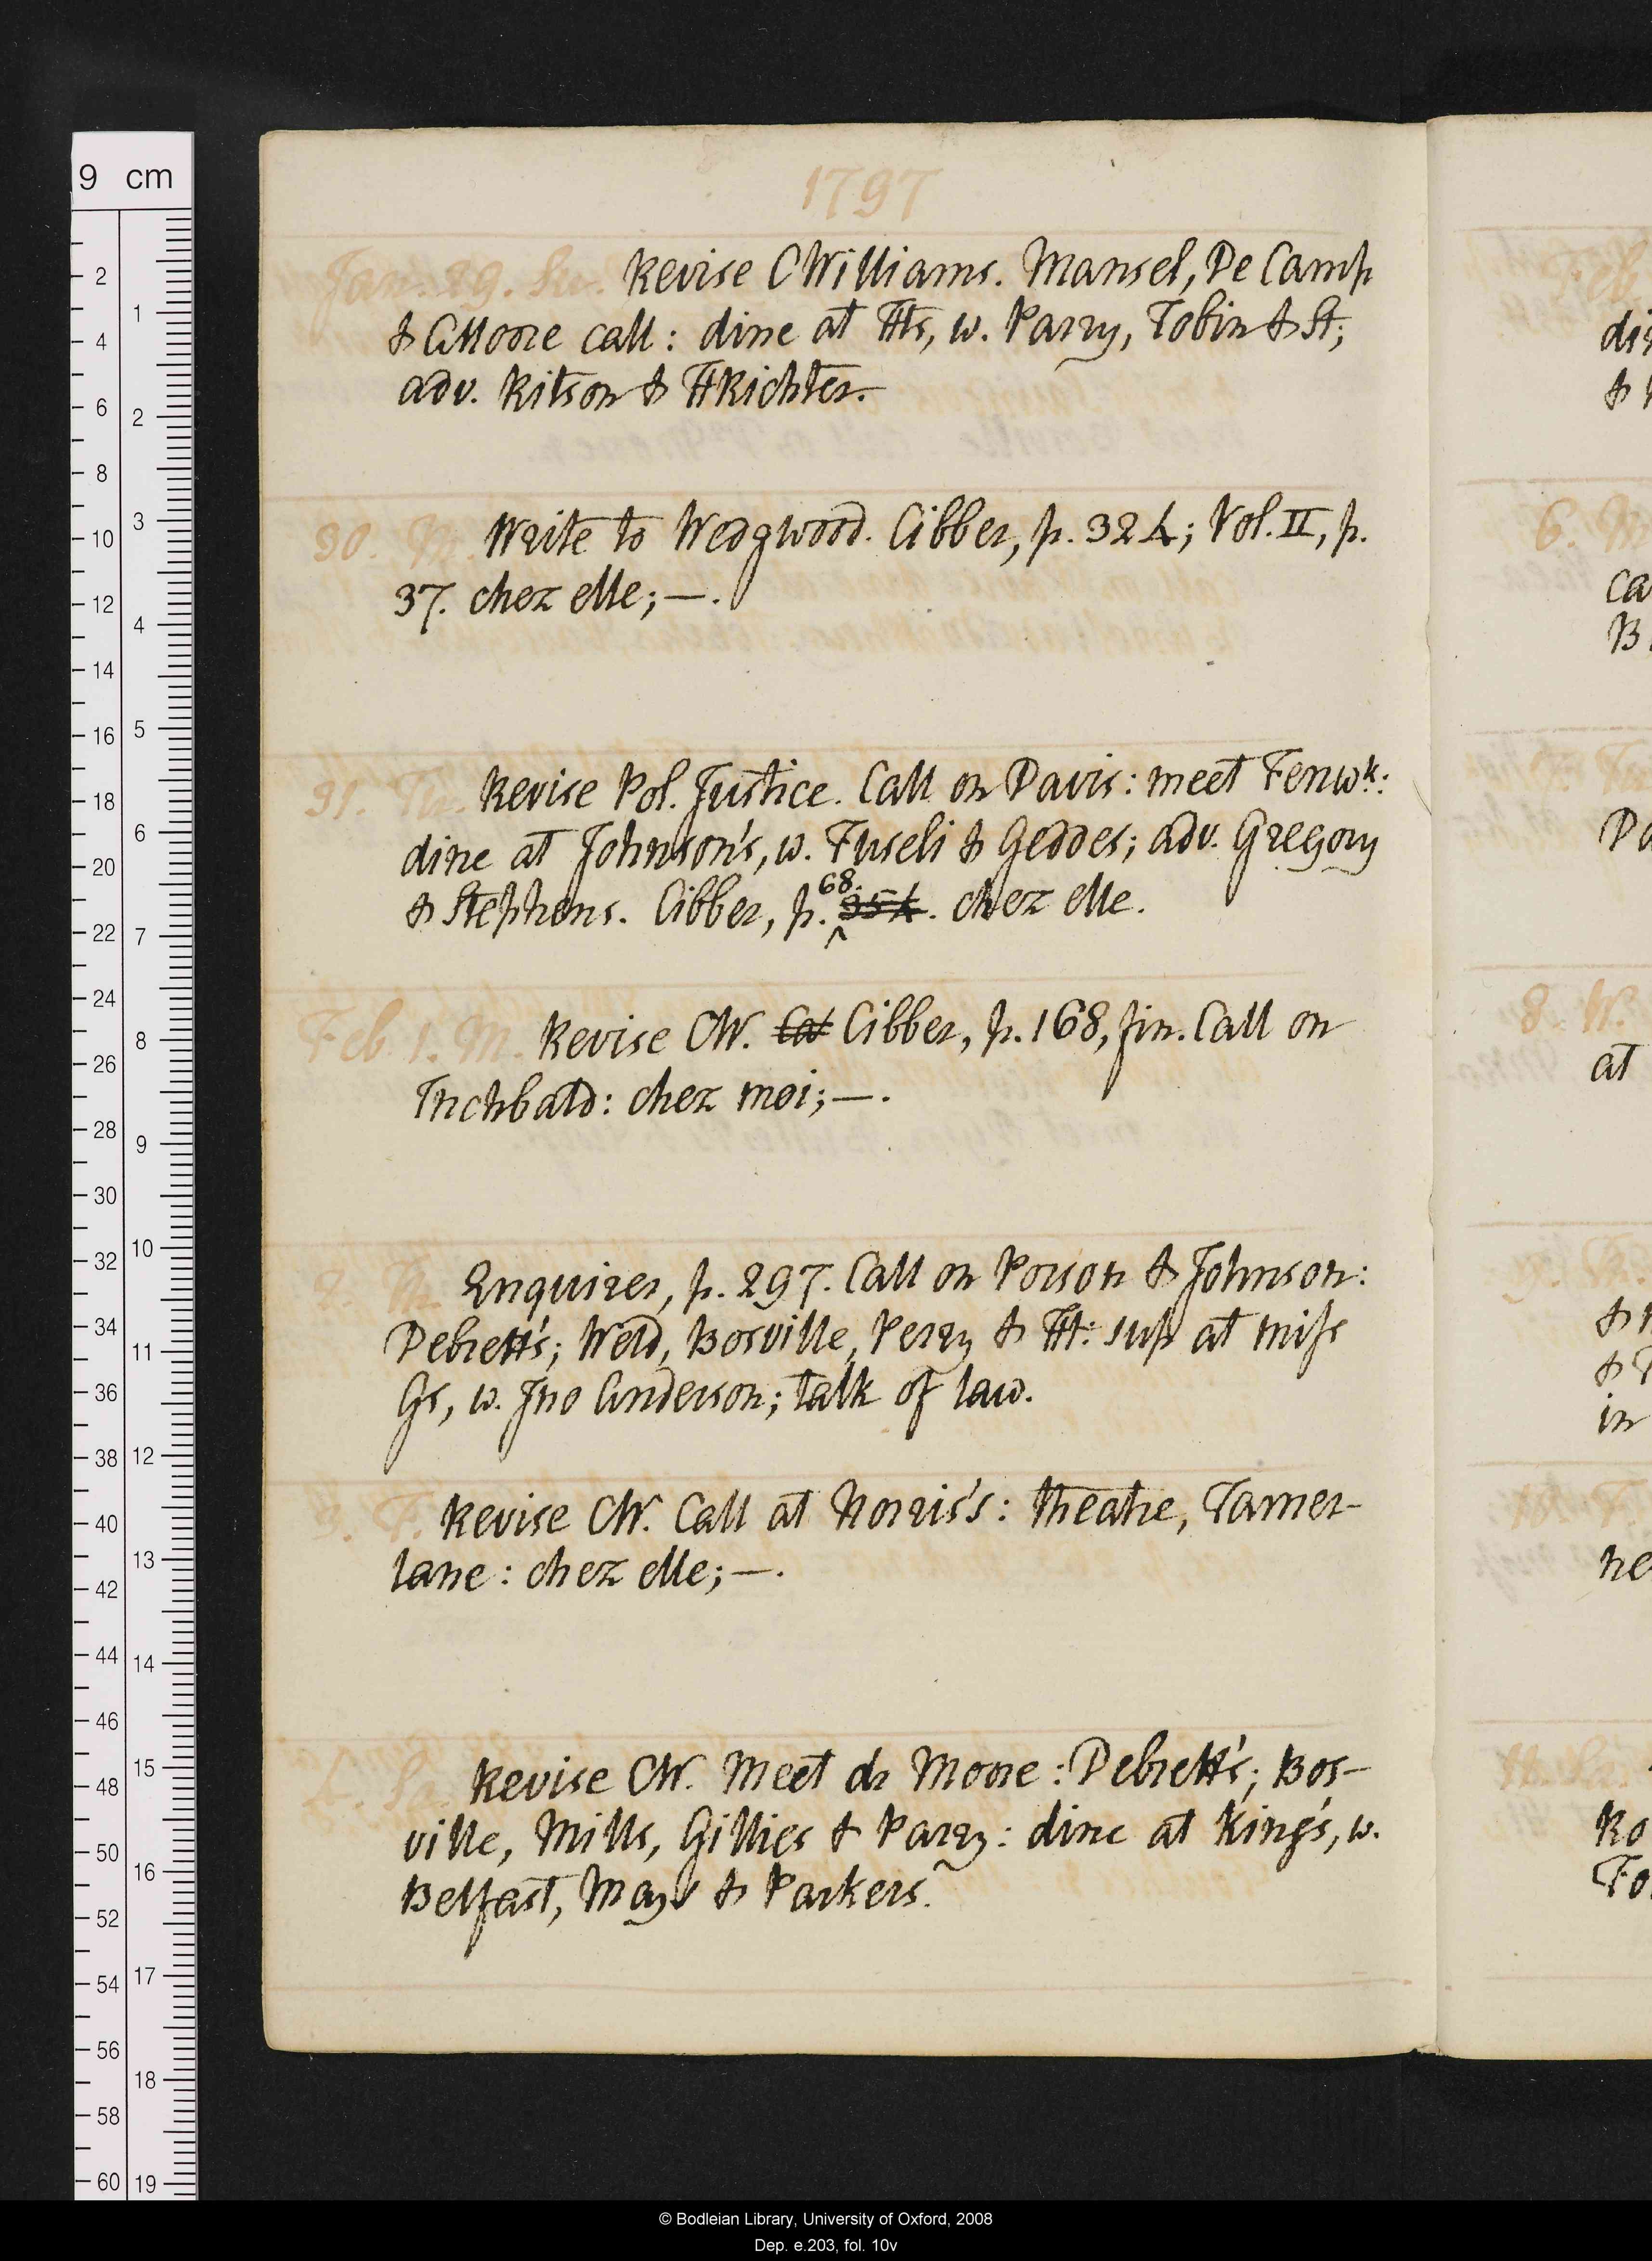 1797
Jan. 29. Su. Revise CWilliams. Mansel, De Camp
& AMoore call: dine at Hts, w. Parry, Tobin & St;
adv. Ritson & HRichter.
30. M. Write to Wedgwood. Cibber, p. 324; Vol. II, p.
37. chez elle; —.
31. Tu. Revise Pol. Justice. Call on Davis: meet Fenwk:
dine at Johnson's, w. Fuseli & Geddes; adv. Gregory
68.
& Stephens. Cibber, p. 354. chez elle.
Feb. 1. W. Revise CW. Ca Cibber, p. 168, fin. Call on
Inchbald: chez moi; —.
2. Th. Enquirer, p. 297. Call on Porson & Johnson:
Debrett's; Weld, Bosville, Perry & Ht: sup at miss
Gs, w. Jno Anderson; talk of law.
3. F. Revise CW. Call at Norris's: theatre, Tamer-
lane: chez elle; —.
4. Sa. Revise CW. Meet dr Moore: Debrett's; Bos-
ville, Mills, Gillies & Parry: dine at King's, w.
Belfast, Mays & Parkers.
di
&
6. M
ca
B
Da
8. W.
at
9.
&
&
in
10. F.
he
11. Sa.
Ro
Fo
9 cm
2 4 6 8 10 12 14 16 18 20 22 24 26 28 30 32 34 36 38 40 42 44 46 48 50 52 54 56 58 60
1 2 3 4 5 6 7 8 9 10 11 12 13 14 15 16 17 18 19
© Bodleian Library, University of Oxford, 2008
Dep. e.203, fol. 10v